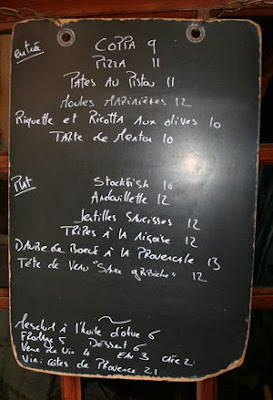 entrée
COPPA 9
PIZZA 11
PATES AU PISTOU 11
MOULES MARINIÈRES 12
Riquette et Ricotta AUX olives 10
TARTE de Menton 10
PLAT
Stockfish 16
Andouillette 12
Lentilles SAUCISSES 12
TRIPES à la Niçoise 12
DAUBE de BOEUF à la PROVENCALE 13
TÊTE de Veau "SAUCE gRibiche" 12
Mesclun à l'huile d'olive 6
FROMAGE 5 DESSERT 6
Verre de Vin 4 EAU 3 CAFE 2
Vin: côtes de Provence 21